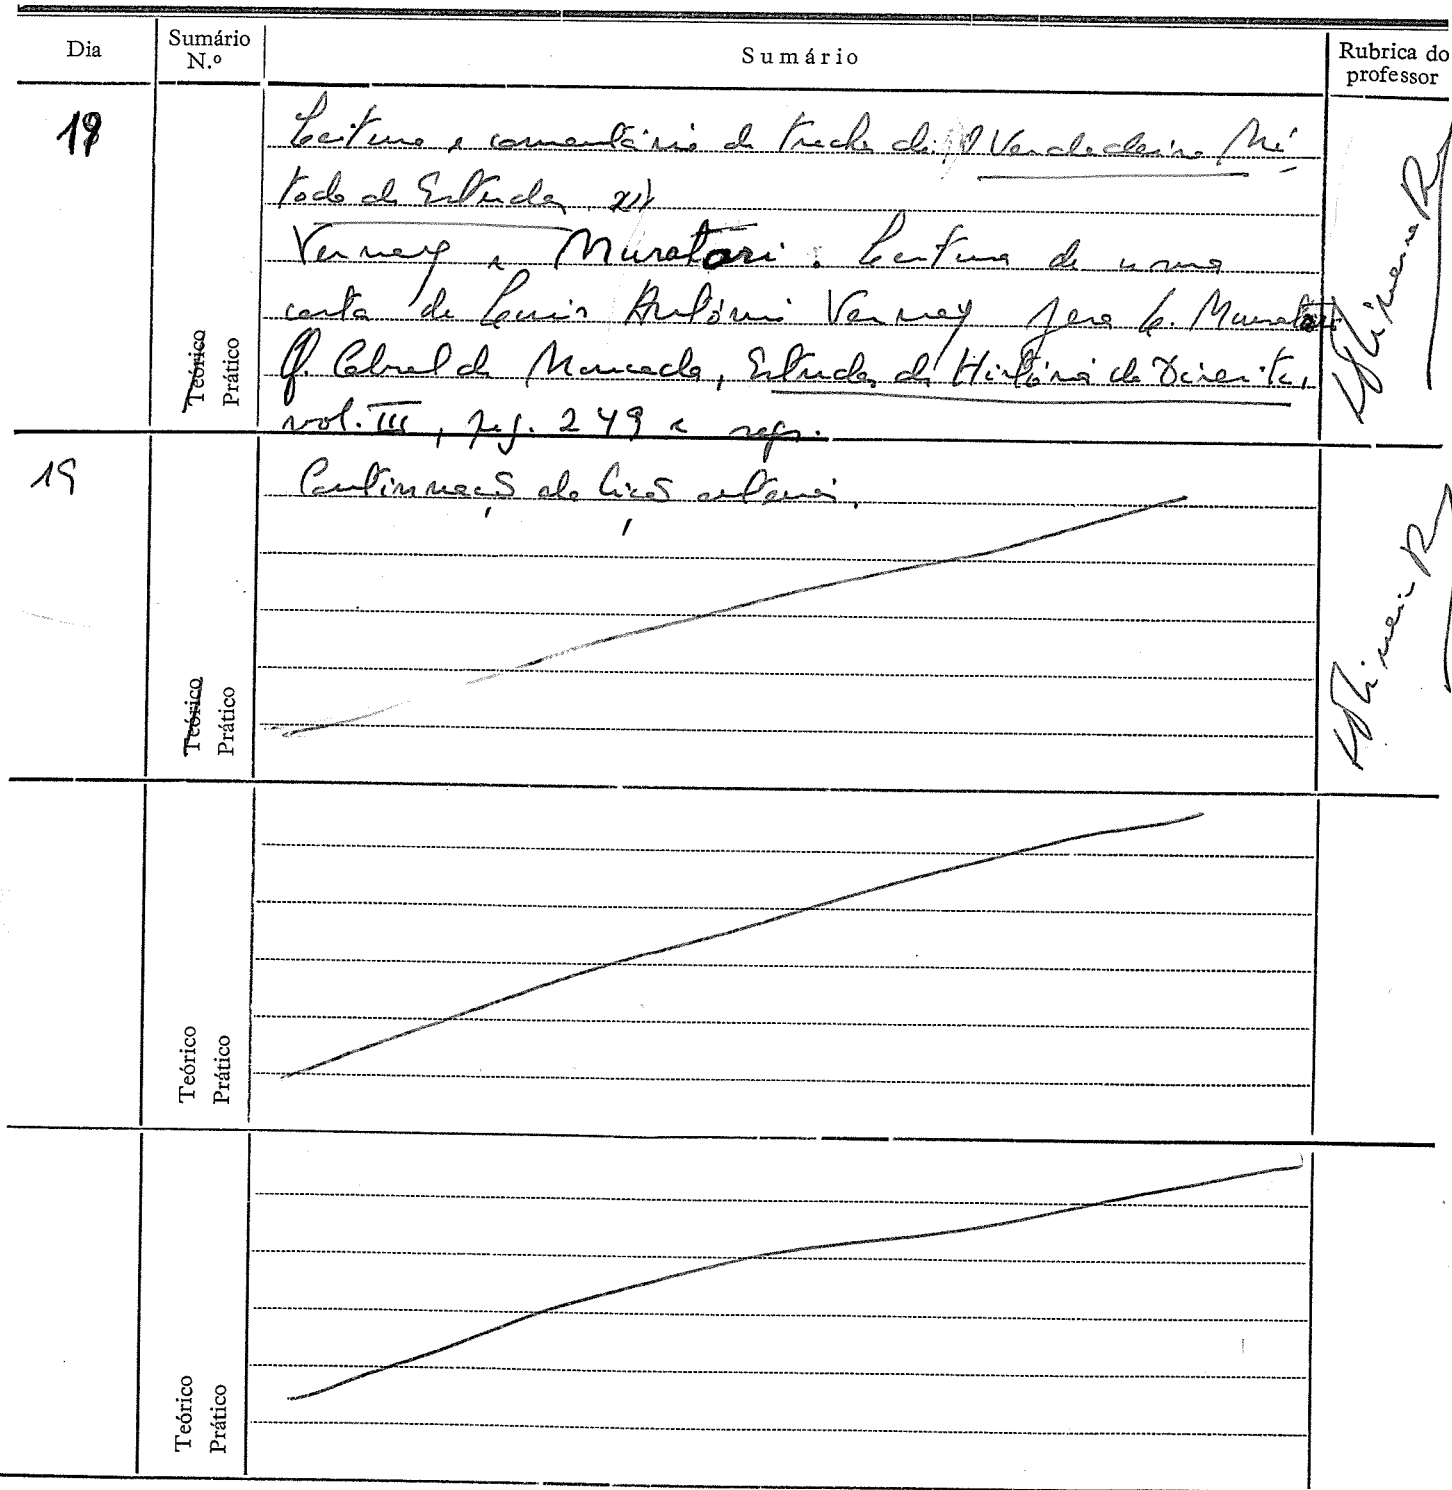 Dia Sumário N.º Sumário Rubrica do professor
18 Leitura e comentário de trechos do Verdadeiro Mé-
todo de Estudar
Verney e Muratori. Leitura de uma
carta de Luís António Verney para L. Muratori
Teórico Prático Q. Cabral de Moncada, Estudos de História do Direito,
vol. III, pág. 249 e segs.
19 Continuação da lição anterior.
Teórico Prático
Teórico Prático
Teórico Prático